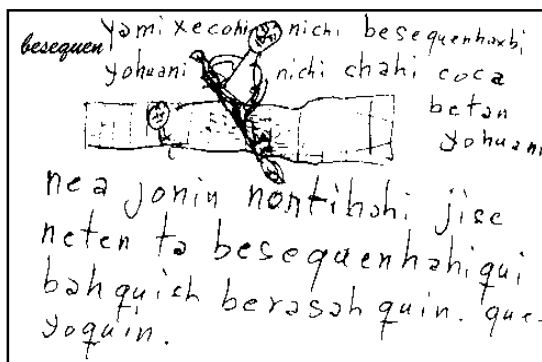 besequen
yami xecohin nichi besequenhaxbi
yohuani nichi chahi coca
betan
yohuani
nea jonin nontihahi jise
neten ta besequenhahiqui
bahquish berasah quin. que-
yoquin.